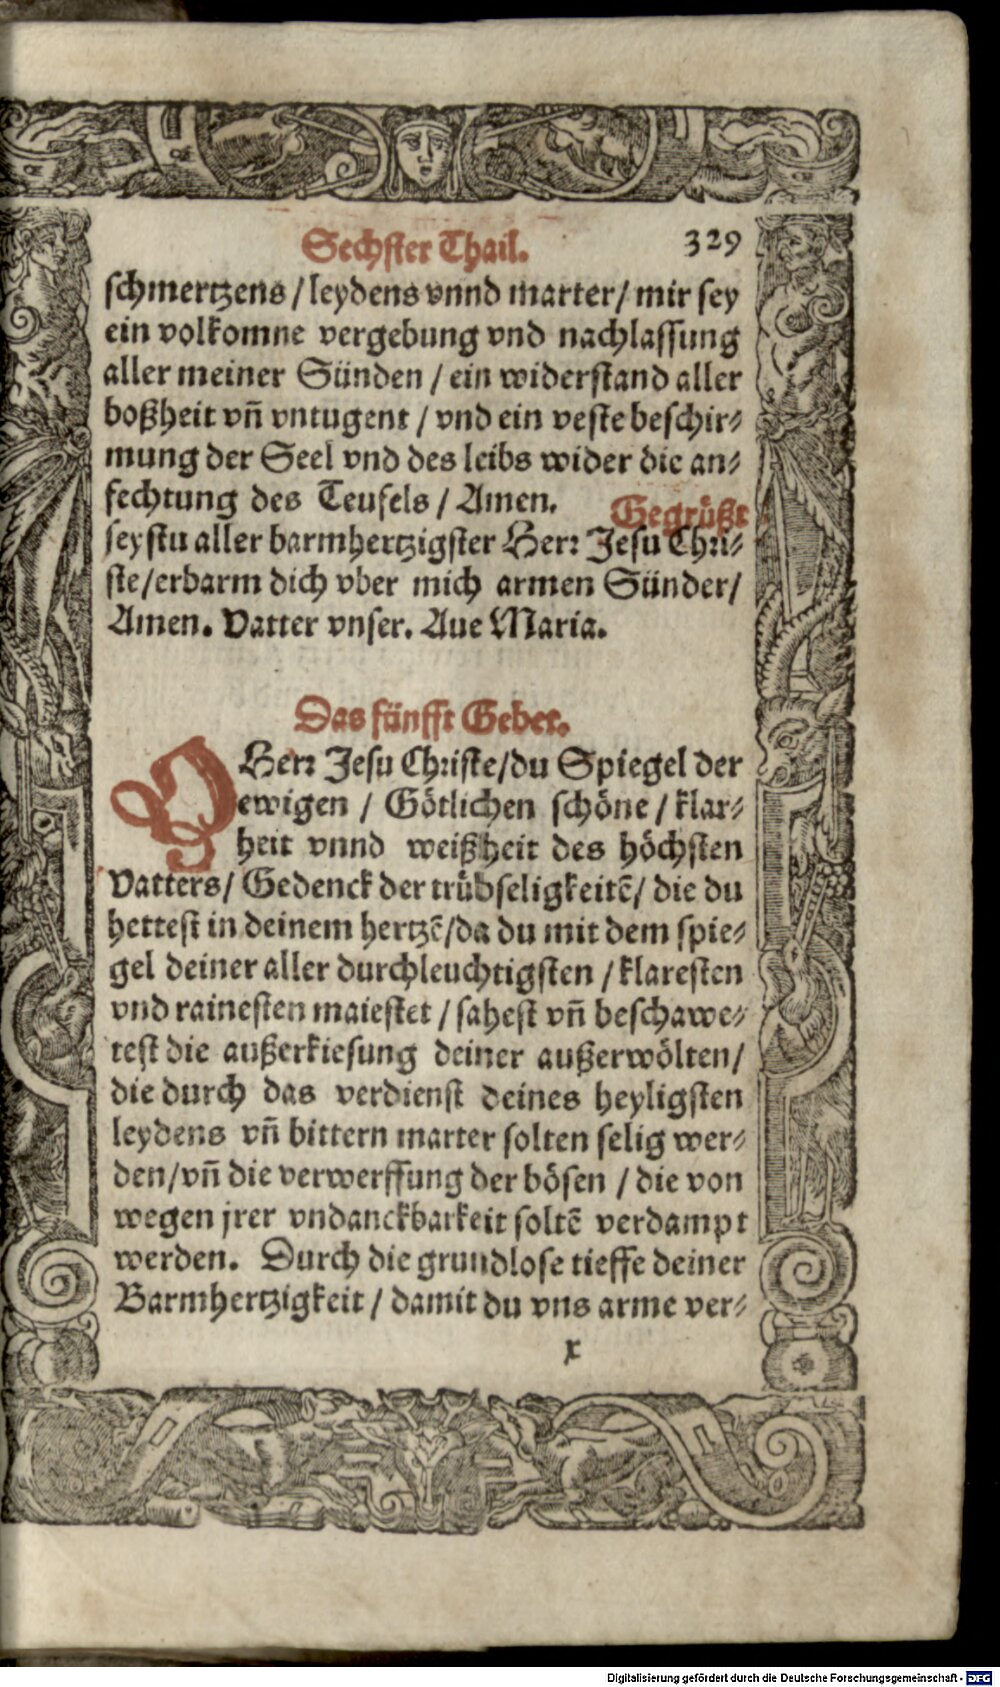 Sechster Thail. 329
schmertzens / leydens vnnd marter / mir sey
ein volkomne vergebung vnd nachlassung
aller meiner Sünden / ein widerstand aller
boßheit vñ vntugent / vnd ein veste beschir⸗
mung der Seel vnd des leibs wider die an⸗
fechtung des Teufels / Amen. Gegrüßt
seystu aller barmhertzigster Herr Jesu Chri⸗
ste/erbarm dich vber mich armen Sünder/
Amen. Vatter vnser. Aue Maria.
Das fünfft Gebet.
O Herr Jesu Christe/du Spiegel der
ewigen / Götlichen schöne / klar⸗
heit vnnd weißheit des höchsten
Vatters/ Gedenck der trübseligkeitẽ/ die du
hettest in deinem hertzẽ/da du mit dem spie⸗
gel deiner aller durchleuchtigsten / klaresten
vnd rainesten maiestet / sahest vñ beschawe⸗
test die außerkiesung deiner außerwölten/
die durch das verdienst deines heyligsten
leydens vñ bittern marter solten selig wer⸗
den/vñ die verwerffung der bösen / die von
wegen jrer vndanckbarkeit soltẽ verdampt
werden. Durch die grundlose tieffe deiner
Barmhertzigkeit / damit du vns arme ver⸗
x
Digitalisierung gefördert durch die Deutsche Forschungsgemeinschaft - DFG